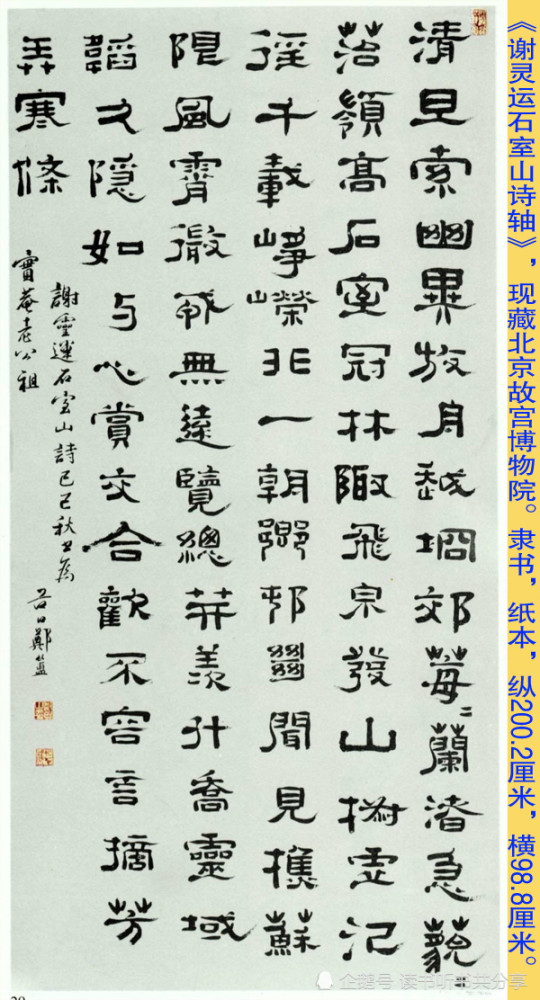 《谢灵运石室山诗轴》，现藏北京故宫博物院。隶书，纸本，纵200.2厘米，横98.8厘米。
清旦索幽異放舟越坰郊莓〻蘭渚急藐〻
苔嶺高石室冠林陬飛泉發山椒虛汜
徑千載崢嶸非一朝鄉邨㡭聞見樵蘇
限風霄微戎無遠覽總笄羨升喬靈域
韜久隱如与心賞交合歡不容言摘芳
弄寒條
謝靈運石室山詩己巳秋日為
寶菴老公祖
谷口鄭簠
企鹅号 读书听书共分享